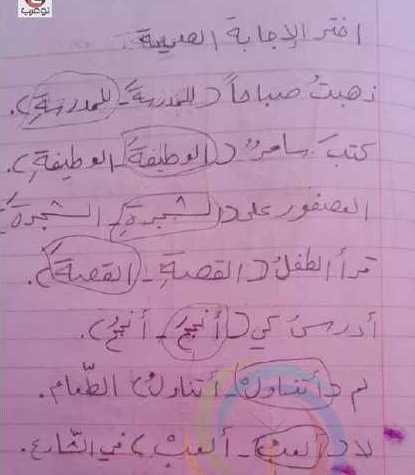 نوعرب
اختر الإجابة الصحيحة.
ذهبتُ صباحاً (للمدرسةَ - للمدرسةِ).
كتبَ سامرُ (الوظيفةَ - الوظيفةِ).
العصفور على (الشجرةِ - الشجرةَ
قرأ الطفلُ (القصةِ - القصةَ).
أدرسُ كي (أنجحَ - أنجحُ).
لم (أتناولْ - أتناولُ) الطّعام.
لا (ألعبُ - ألعبْ) في الشّارع.